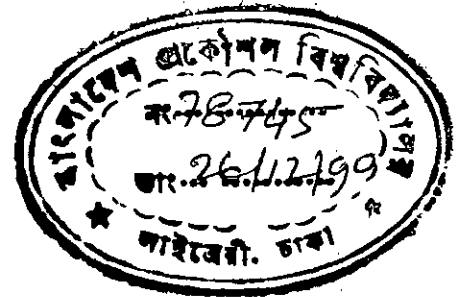 বাংলাদেশ প্রকৌশল বিশ্ববিদ্যালয়
নং..78745...
তাং...26/12/99
লাইব্রেরী. ঢাকা